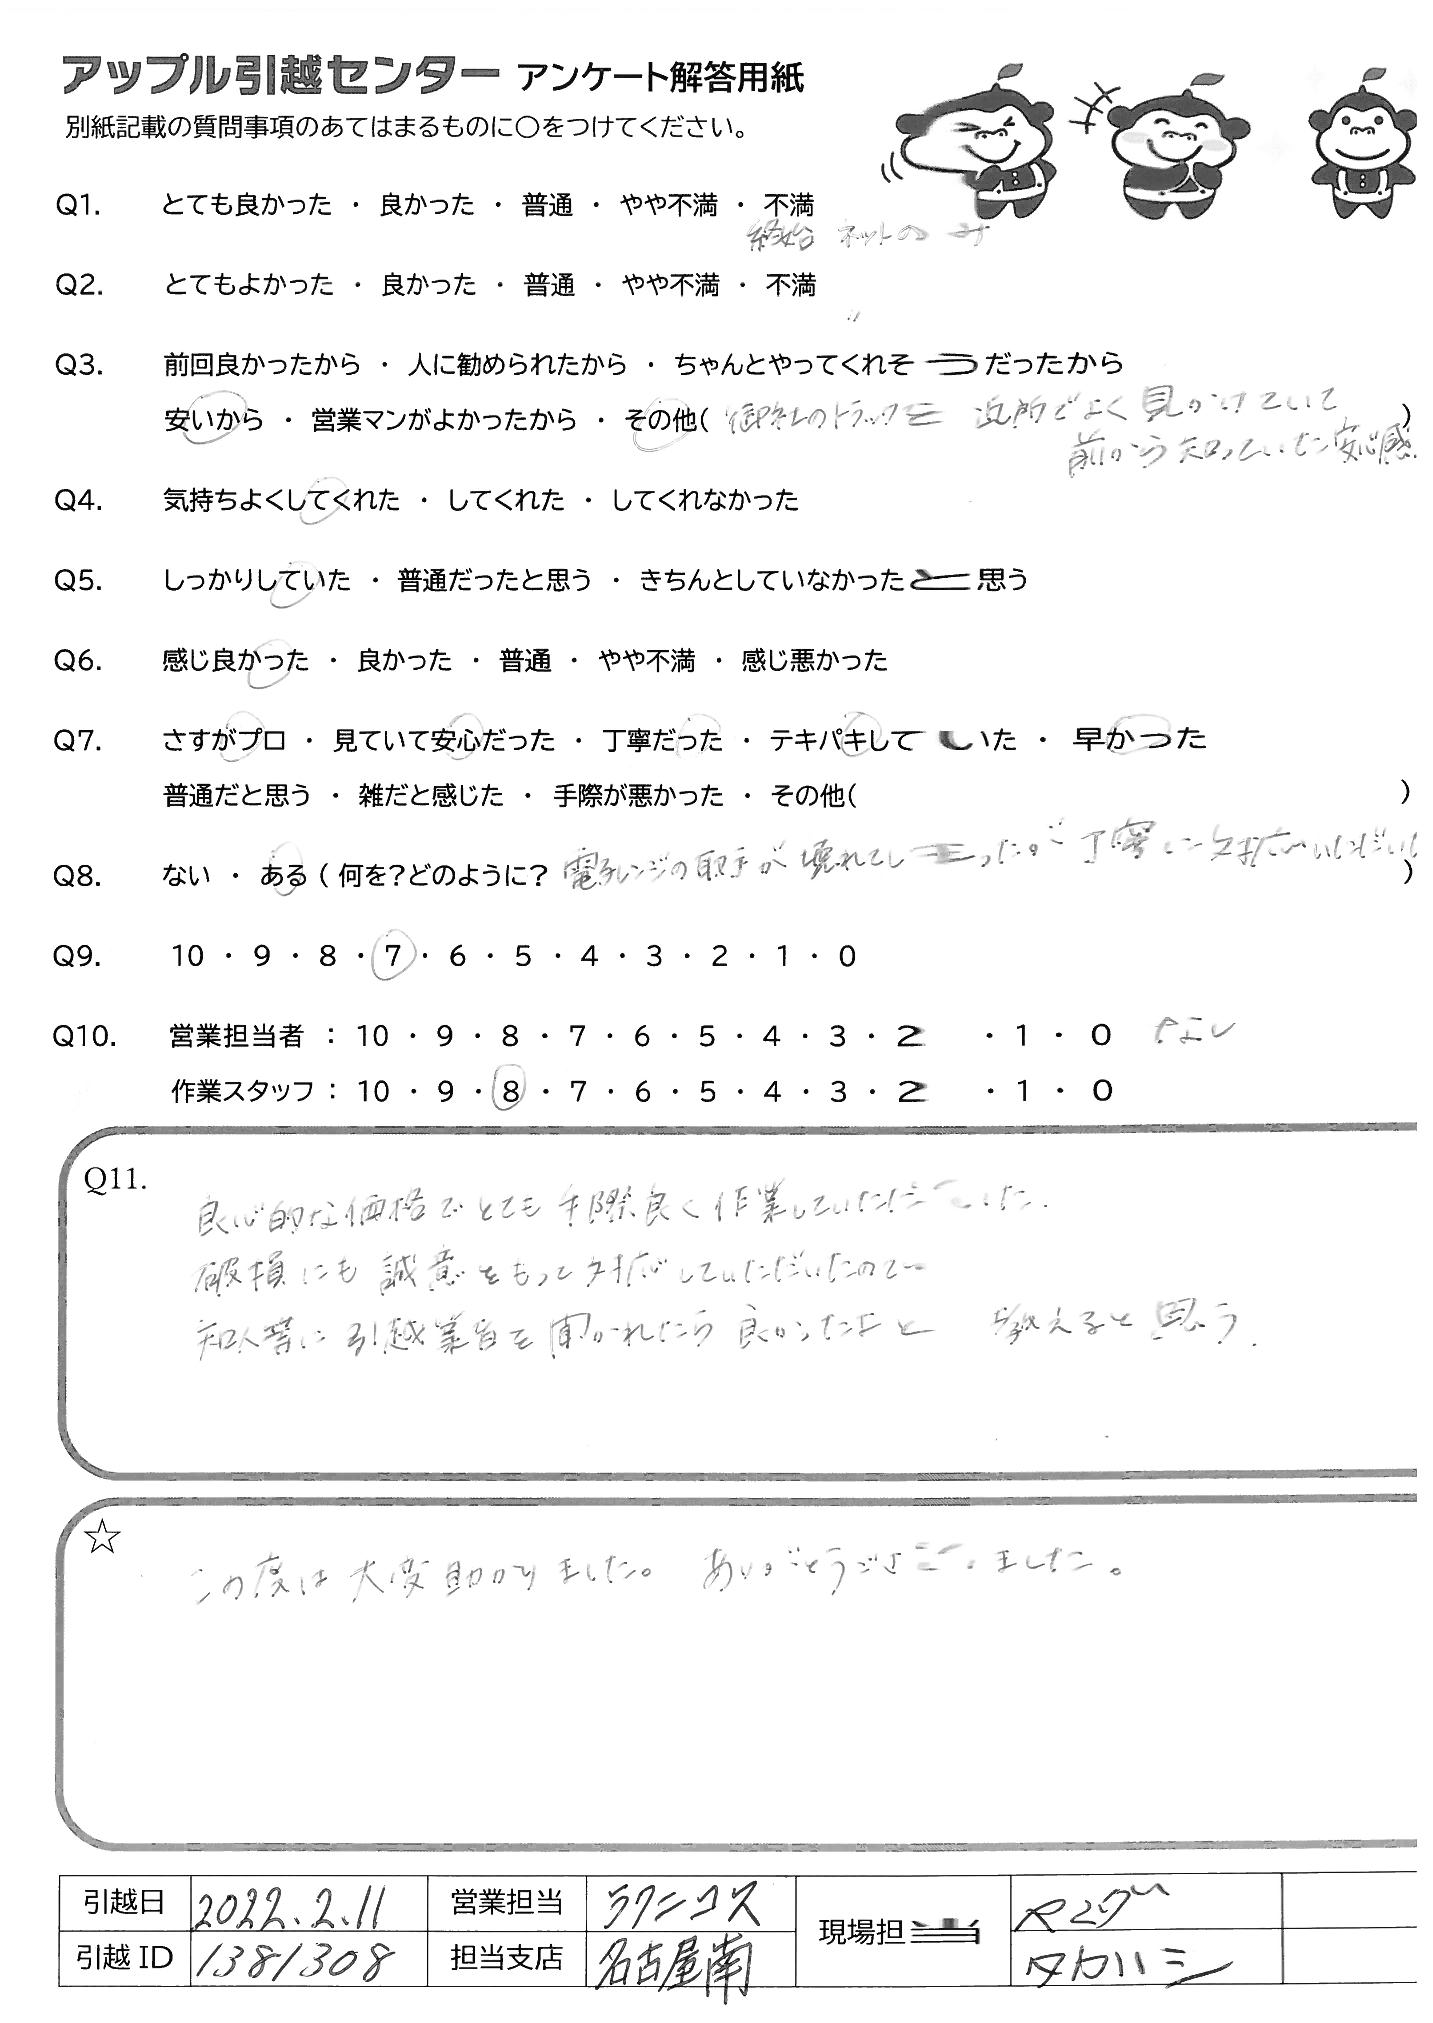 アップル引越センター アンケート解答用紙
別紙記載の質問事項のあてはまるものに〇をつけてください。
Q1. とても良かった ・ 良かった ・ 普通 ・ やや不満 ・ 不満
終始 ネットのみ
Q2. とてもよかった ・ 良かった ・ 普通 ・ やや不満 ・ 不満
〃
Q3. 前回良かったから ・ 人に勧められたから ・ ちゃんとやってくれそうだったから
安いから ・ 営業マンがよかったから ・ その他( 御社のトラックを 近所でよく見かけていて )
前から知っていた安心感
Q4. 気持ちよくしてくれた ・ してくれた ・ してくれなかった
Q5. しっかりしていた ・ 普通だったと思う ・ きちんとしていなかったと思う
Q6. 感じ良かった ・ 良かった ・ 普通 ・ やや不満 ・ 感じ悪かった
Q7. さすがプロ ・ 見ていて安心だった ・ 丁寧だった ・ テキパキしていた ・ 早かった
普通だと思う ・ 雑だと感じた ・ 手際が悪かった ・ その他( )
Q8. ない ・ ある ( 何を?どのように? 電子レンジの取手が壊れてしまったが 丁寧に対応いただいた )
Q9. 10 ・ 9 ・ 8 ・ 7 ・ 6 ・ 5 ・ 4 ・ 3 ・ 2 ・ 1 ・ 0
Q10. 営業担当者 : 10 ・ 9 ・ 8 ・ 7 ・ 6 ・ 5 ・ 4 ・ 3 ・ 2 ・ 1 ・ 0 なし
作業スタッフ : 10 ・ 9 ・ 8 ・ 7 ・ 6 ・ 5 ・ 4 ・ 3 ・ 2 ・ 1 ・ 0
Q11.
良心的な価格でとても手際良く作業していただいた.
破損にも誠意をもって対応していただいたので
知人等に引越業者を聞かれたら良かったよと 教えると思う.
☆
この度は大変助かりました。 ありがとうございました。
引越日 2022.2.11 営業担当 ラクニコス 現場担当
引越 ID 1381308 担当支店 名古屋南 タカハシ